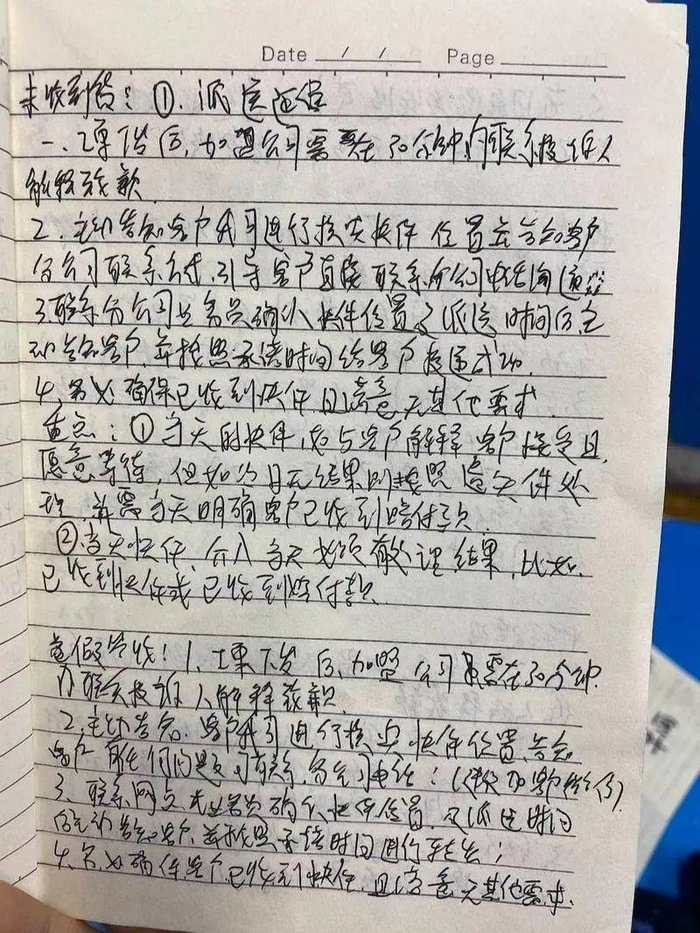 Date / / Page
未收到货：①.派送延误
一、工单下发后,加盟公司需要在30分钟内联系投诉人
解释致歉
2.主动告知客户我司进行核实快件 位置并告知客户
分公司联系方式,引导客户直接联系分公司电话沟通
3.联系分公司业务员确认快件位置及派送时间后,主
动告知客户,并按照承诺时间给客户投递成功.
4.务必确保已收到快件且满意无其他需求.
重点：①当天的快件,如与客户解释客户接受且
愿意等待,但如当日无结果则按照遗失件处
理,并需当天明确客户已收到赔付款.
②当天快件,介入当天必须有处理结果,比如.
已收到快件或已收到赔付款.
虚假签收!1.工单下发后,加盟公司需在30分钟.
内联系投诉人解释致歉.
2.主动告知.客户我司进行核实快件位置,告知
客户有任何问题,可联系分公司电话:
3.联系网点业务员确认快件位置,及派送时间
后主动告知客户,并按照承诺时间进行转出;
4.务必确保客户已收到快件,且满意无其他需求.